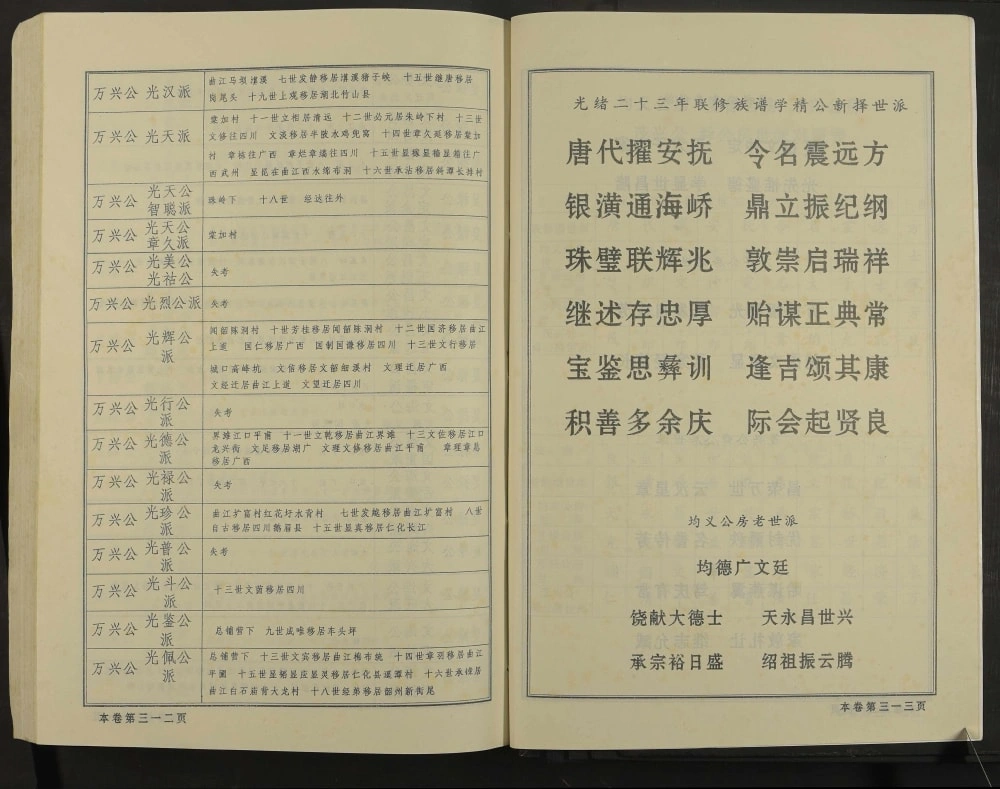 万兴公 光汉派
曲江马坝塱溪 七世发静移居塱溪猪子峡 十五世继唐移居
岗尾头 十九世上观移居湖北竹山县
万兴公 光天派
棠加村 十一世立相居清远 十二世必元居朱岭下村 十三世
文修往四川 文淡移居半陂水鸡兜窝 十四世章久延移居棠加
村 章栋往广西 章烂章缟往四川 十五世显稼显穑显稻往广
西武州 显昆在曲江西水绵布洞 十六世承沾移居斜潭长排村
万兴公 光天公
智聪派
珠岭下 十八世 经达往外
万兴公 光天公
章久派
棠加村
万兴公 光美公
光祜公
失考
万兴公 光烈公派
失考
万兴公 光辉公
派
闻韶陈洞村 十世芳桂移居闻韶陈洞村 十二世国济移居曲江
上道 国仁移居广西 国制国谦移居四川 十三世文行移居
城口高峰坑 文佰移居文韶细溪村 文理迁居广西
文经迁居曲江上道 文望迁居四川
万兴公 光行公
派
失考
万兴公 光德公
派
界滩江口平甫 十一世立乾移居曲江界滩 十三文位移居江口
龙兴街 文足移居湖广 文理文修移居曲江平甫 章理章总
移居广西
万兴公 光禄公
派
失考
万兴公 光珍公
派
曲江犷富村红花圩水背村 七世发越移居曲江犷富村 八世
自古移居四川鹅眉县 十五世显真移居仁化长江
万兴公 光普公
派
失考
万兴公 光斗公
派
十三世文茵移居四川
万兴公 光鉴公
派
总铺营下 九世成唯移居车头坪
万兴公 光佩公
派
总铺营下 十三世文宾移居曲江梅布统 十四世章羽移居曲江
平圃 十五世显猪显应显灵移居仁化县逕潭村 十六世承维居
曲江白石庙背大龙村 十八世经弟移居韶州新街尾
本卷第三一二页
光绪二十三年联修族谱学精公新择世派
唐代擢安抚 令名震远方
银潢通海峤 鼎立振纪纲
珠璧联辉兆 敦崇启瑞祥
继述存忠厚 贻谋正典常
宝鉴思彝训 逢吉颂其康
积善多余庆 际会起贤良
均义公房老世派
均德广文廷
饶献大德士 天永昌世兴
承宗裕日盛 绍祖振云腾
本卷第三一三页